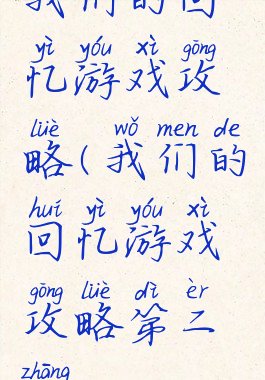 我们的回
yì yóu xì gōng
忆游戏攻
lüè wǒ men de
略(我们的
huí yì yóu xì
回忆游戏
gōng lüè dì èr
攻略第二
zhāng